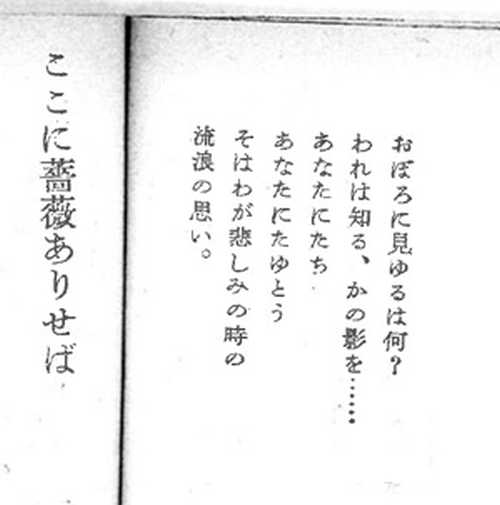 おぼろに見ゆるは何？
われは知る、かの影を……
あなたにたち
あなたにたゆとう
そはわが悲しみの時の
流浪の思い。
ここに薔薇ありせば